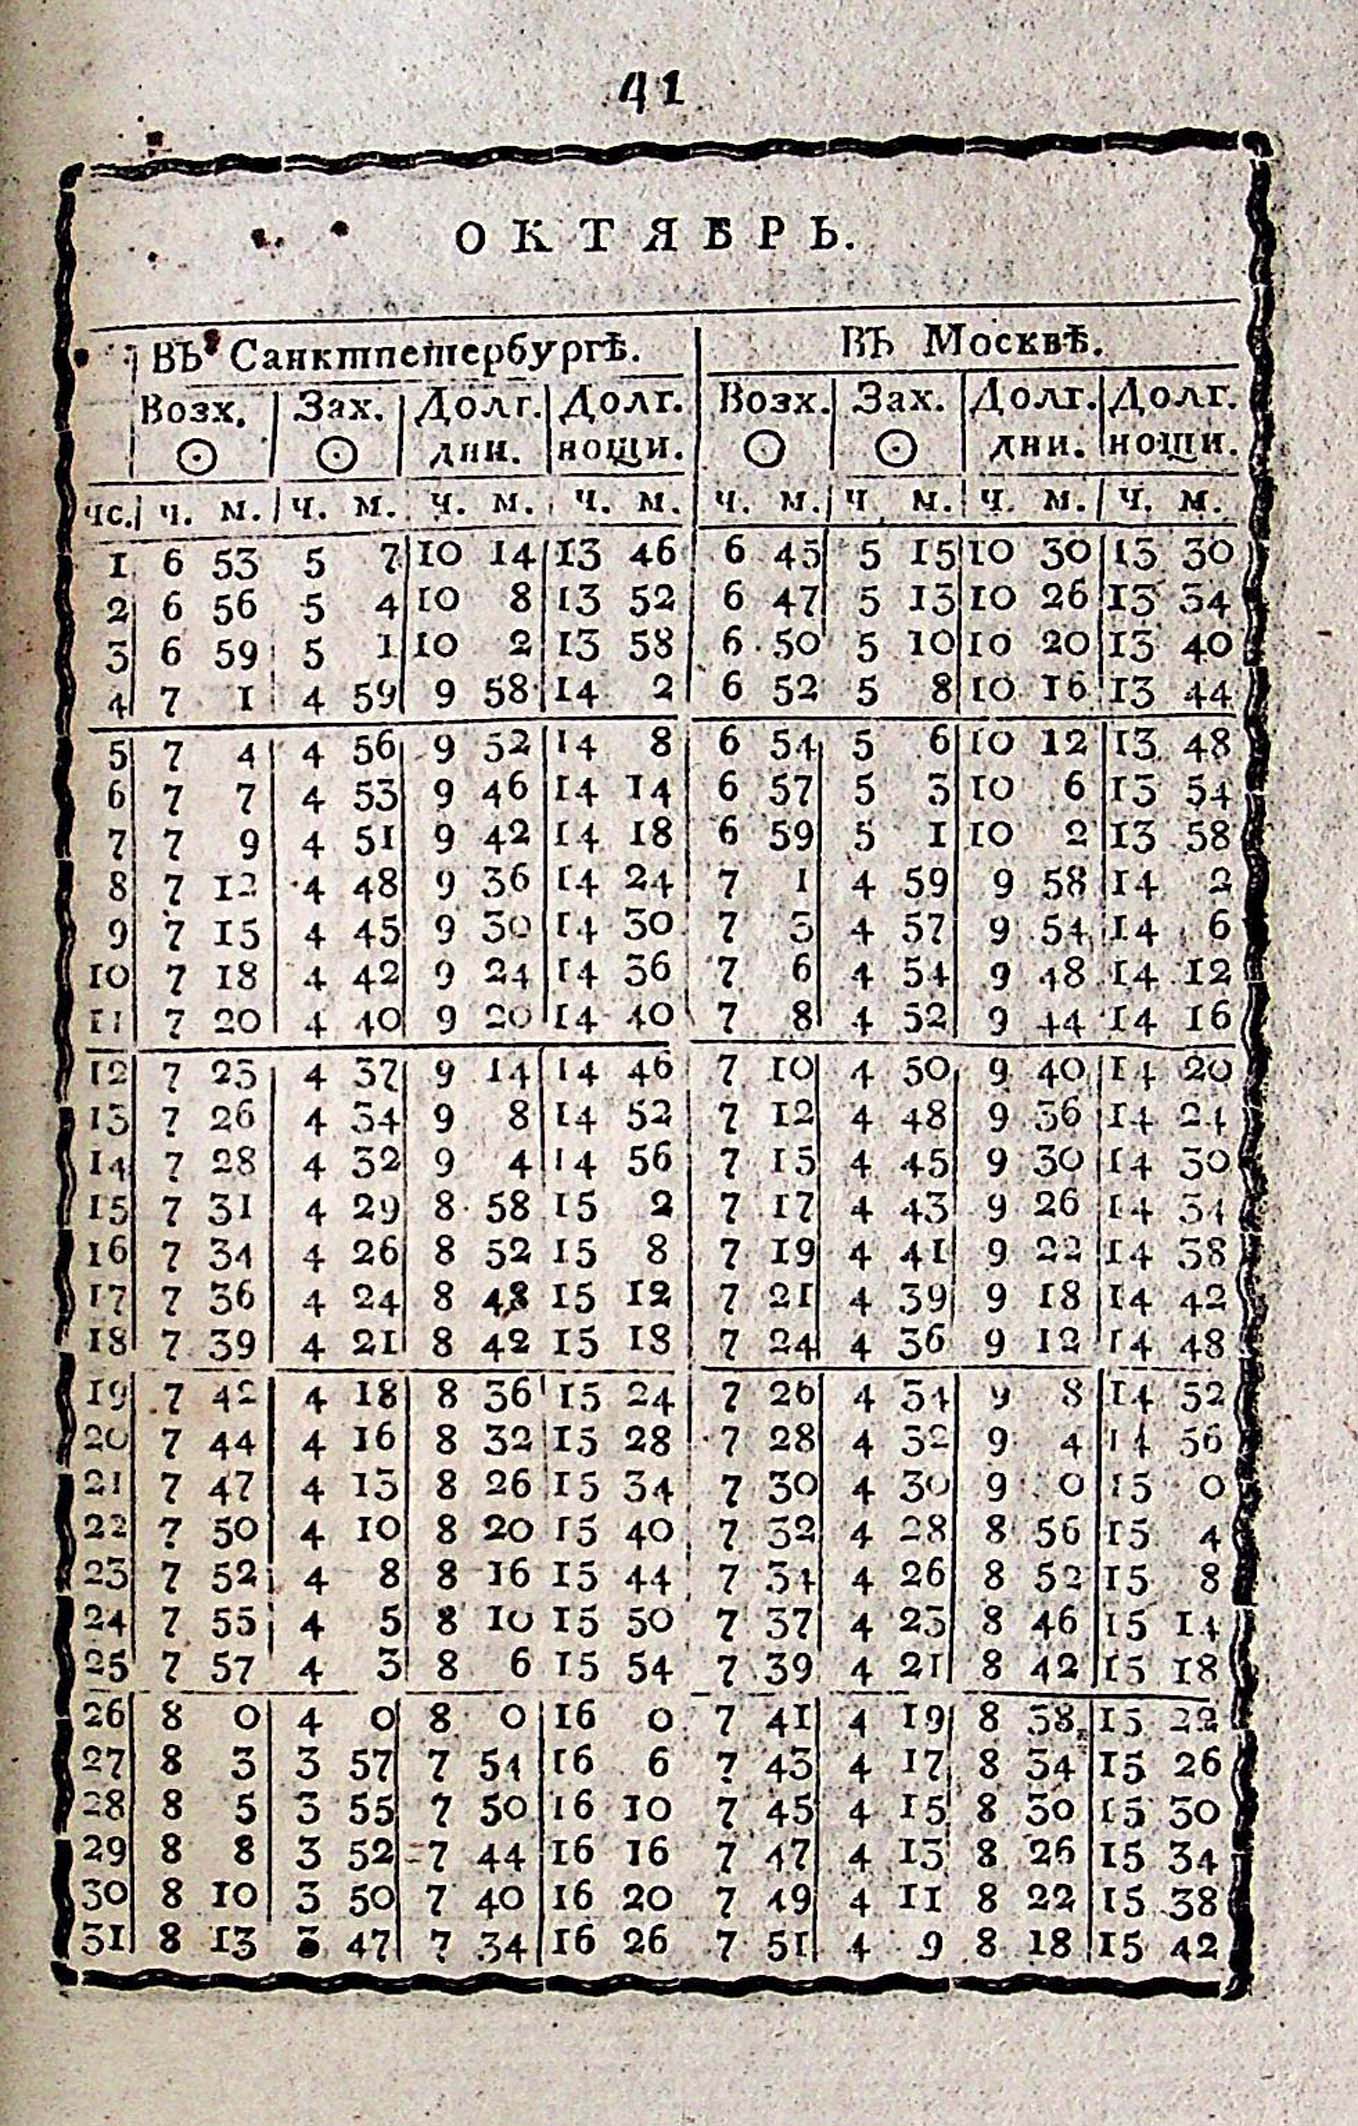 41
ОКТЯБРЬ.
ВЪ Санктпетербургѣ. ВЪ Москвѣ.
Возх. Зах. Долг. Долг. Возх. Зах. Долг. Долг.
☉ ☉ дни. нощи. ☉ ☉ дни. нощи.
чс. ч. м. ч. м. ч. м. ч. м. ч. м. ч м. ч. м. ч. м.
1 6 53 5 7 10 14 13 46 6 45 5 15 10 30 13 30
2 6 56 5 4 10 8 13 52 6 47 5 13 10 26 13 34
3 6 59 5 1 10 2 13 58 6 50 5 10 10 20 13 40
4 7 1 4 59 9 58 14 2 6 52 5 8 10 16 13 44
5 7 4 4 56 9 52 14 8 6 54 5 6 10 12 13 48
6 7 7 4 53 9 46 14 14 6 57 5 3 10 6 13 54
7 7 9 4 51 9 42 14 18 6 59 5 1 10 2 13 58
8 7 12 4 48 9 36 14 24 7 1 4 59 9 58 14 2
9 7 15 4 45 9 30 14 30 7 3 4 57 9 54 14 6
10 7 18 4 42 9 24 14 36 7 6 4 54 9 48 14 12
11 7 20 4 40 9 20 14 40 7 8 4 52 9 44 14 16
12 7 23 4 37 9 14 14 46 7 10 4 50 9 40 14 20
13 7 26 4 34 9 8 14 52 7 12 4 48 9 36 14 24
14 7 28 4 32 9 4 14 56 7 15 4 45 9 30 14 30
15 7 31 4 29 8 58 15 2 7 17 4 43 9 26 14 34
16 7 34 4 26 8 52 15 8 7 19 4 41 9 22 14 38
17 7 36 4 24 8 48 15 12 7 21 4 39 9 18 14 42
18 7 39 4 21 8 42 15 18 7 24 4 36 9 12 14 48
19 7 42 4 18 8 36 15 24 7 26 4 34 9 8 14 52
20 7 44 4 16 8 32 15 28 7 28 4 32 9 4 14 56
21 7 47 4 13 8 26 15 34 7 30 4 30 9 0 15 0
22 7 50 4 10 8 20 15 40 7 32 4 28 8 56 15 4
23 7 52 4 8 8 16 15 44 7 34 4 26 8 52 15 8
24 7 55 4 5 8 10 15 50 7 37 4 23 8 46 15 14
25 7 57 4 3 8 6 15 54 7 39 4 21 8 42 15 18
26 8 0 4 0 8 0 16 0 7 41 4 19 8 38 15 22
27 8 3 3 57 7 54 16 6 7 43 4 17 8 34 15 26
28 8 5 3 55 7 50 16 10 7 45 4 15 8 30 15 30
29 8 8 3 52 7 44 16 16 7 47 4 13 8 26 15 34
30 8 10 3 50 7 40 16 20 7 49 4 11 8 22 15 38
31 8 13 3 47 7 34 16 26 7 51 4 9 8 18 15 42